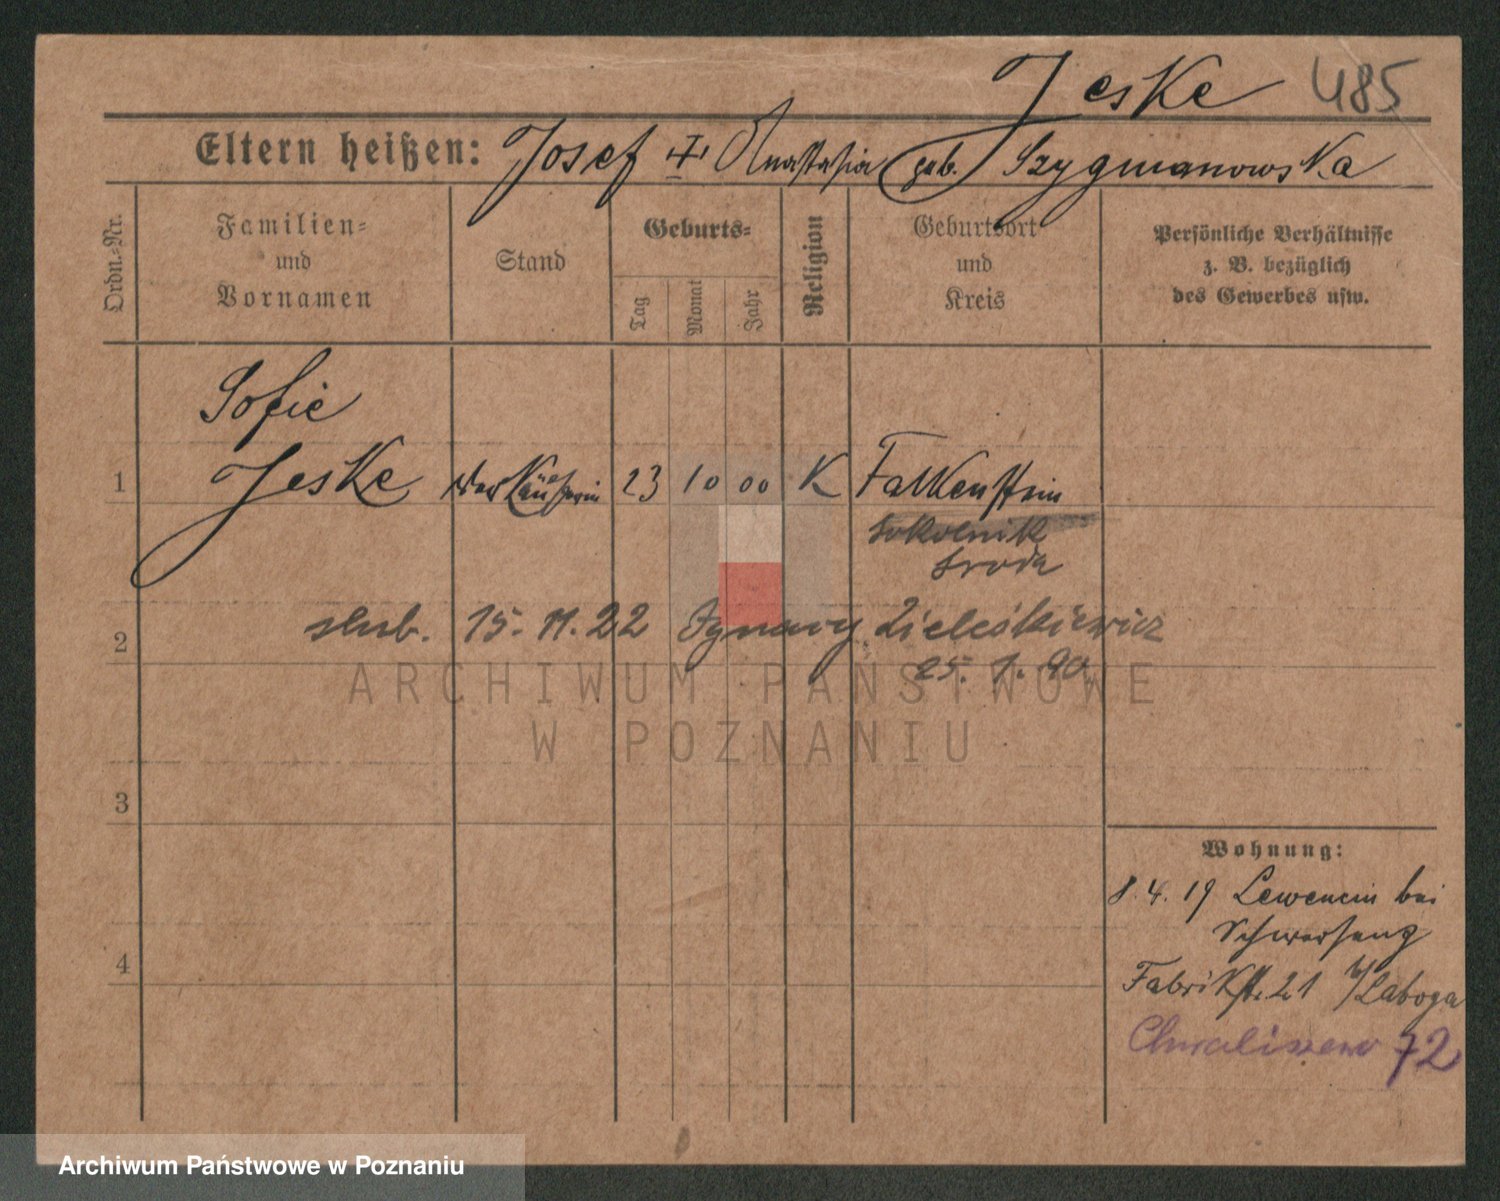 Jeske 485
Eltern heißen: Josef + Anastasia geb. Szygmanowska
Ordn.-Nr.
Familien-
und
Vornamen
Stand
Geburts-
Tag
Monat
Jahr
Religion
Geburtsort
und
Kreis
Persönliche Verhältnisse
z. B. bezüglich
des Gewerbes usw.
Sofie
1 Jeske Verkäuferin 23 10 00 K Falkenstein
Sokolnik
Sroda
2 slub. 15. 11. 22 Ignacy Zieleśkiewicz
25. 7. 90
ARCHIWUM PAŃSTWOWE
W POZNANIU
3
4
Wohnung:
8. 4. 19 Lewenein bei
Schwersenz
Fabrikstr. 21 b/Laboga
Chwaliszewo 72
Archiwum Państwowe w Poznaniu